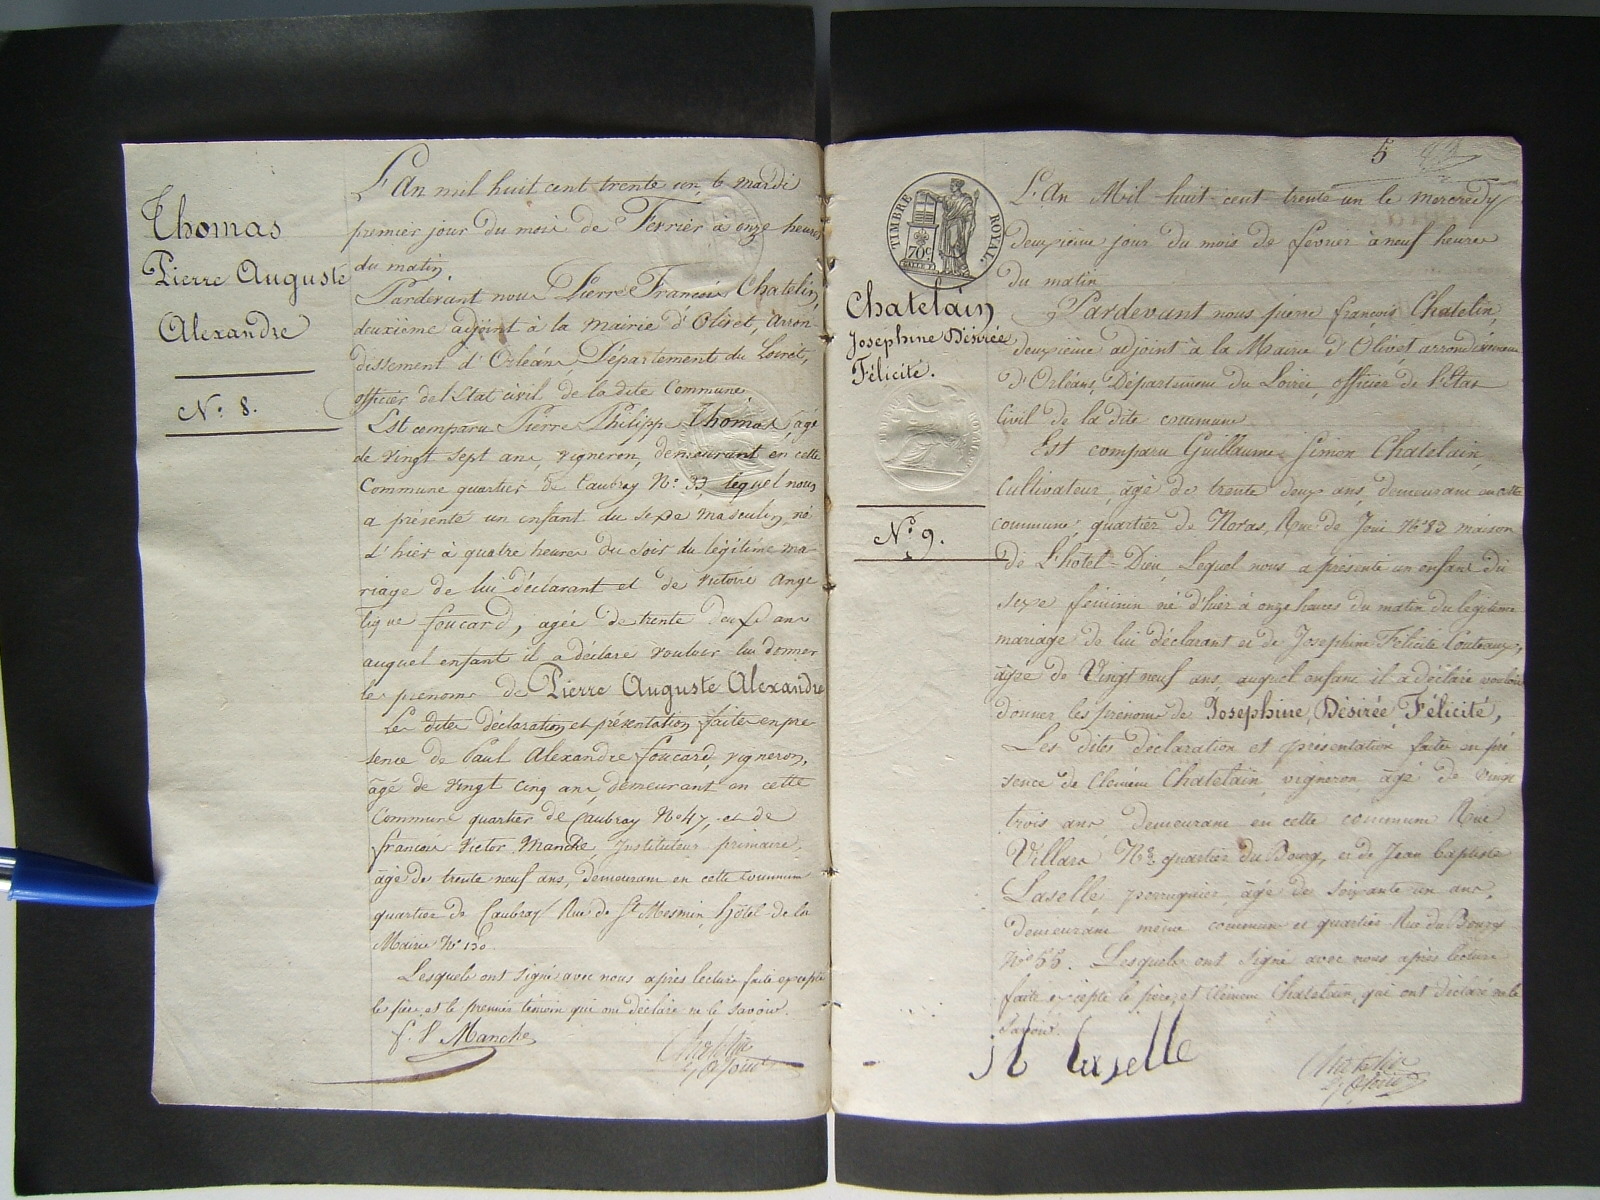 Thomas
Pierre Auguste
Alexandre
N.° 8.
L'An mil huit cent trente un, le mardi
premier jour du mois de Février à onze heures
du matin.
Pardevant nous Pierre François Chatelin,
deuxième adjoint à la Mairie d'Olivet, arron
dissement d'Orléans, Département du Loiret,
officier de l'Etat civil de la dite Commune.
Est comparu Pierre Philippe Thomas, âgé
de vingt sept ans, vigneron, demeurant en cette
Commune quartier de Caubray N.° 33, lequel nous
a présenté un enfant du sexe masculin, né
d'hier à quatre heures du soir du légitime ma
riage de lui déclarant et de Victoire Angé
lique foucard, agée de trente deux ans
auquel enfant il a déclaré vouloir lui donner
les prenoms de Pierre Auguste Alexandre
Les dites déclaration et présentation faites en pré
sence de Paul Alexandre foucard, vigneron,
âgé de vingt cinq ans, demeurant en cette
Commune quartier de Caubray N° 47, et de
francois Victor Manche, Instituteur primaire,
âgé de trente neuf ans, demeurant en cette commune
quartier de Caubray Rue de St Mesmin, hôtel de la
Mairie N° 130
Lesquels ont signé avec nous après lecture faite excepté
le père, et le premier témoin qui ont déclaré ne le savoir.
f. V Manche
Chatelin
adjoint
5
TIMBRE ROYAL.
70c
Chatelain
Josephine Désirée
Félicité.
N.° 9.
L'An Mil huit cent trente un le mercredy
deuxième jour du mois de fevrier à neuf heures
du matin
Pardevant nous pierre françois Chatelin,
deuxième adjoint à la Mairie d'Olivet arrondissement
d'Orléans, Département du Loiret, officier de l'Etat
Civil de la dite commune
Est comparu Guillaume Simon Chatelain,
Cultivateur, âgé de trente deux ans, demeurant en cette
commune, quartier de Noras, Rue de Joui N° 83 maison
de L'hotel-Dieu, Lequel nous a présenté un enfant du
sexe féminin né d'hier à onze heures du matin du légitime
mariage de lui déclarant et de Josephine Félicité Couteaux,
âgée de Vingt neuf ans, auquel enfant il a déclaré vouloir
donner les prénoms de Josephine, Désirée, Félicité,
Les dites déclaration et présentation faites en pré
sence de Clément Chatelain, vigneron, âgé de vingt
trois ans, demeurant en cette commune Rue
Villars N° quartier du Bourg, et de Jean baptiste
Laselle, perruquier, âgé de soixante un ans,
demeurant même commune et quartier Rue du Bourg
N° 55. Lesquels ont signé avec nous après lecture
faite excepté le père, et Clément Chatelain, qui ont déclaré ne le
savoir.
Laselle
Chatelin
adjoint